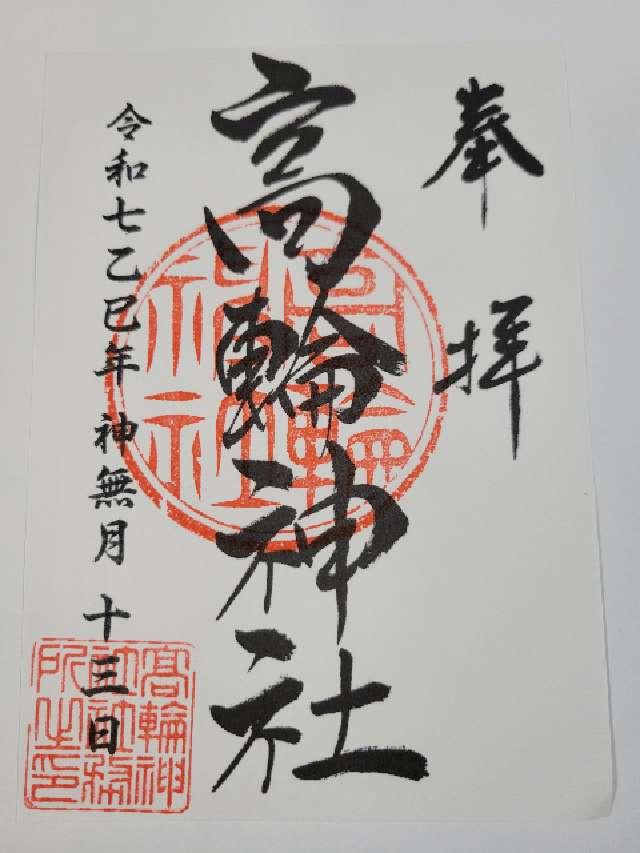 奉拝
高輪神社
令和七乙巳年 神無月 十三日
高輪神社
高輪神社社務所之印